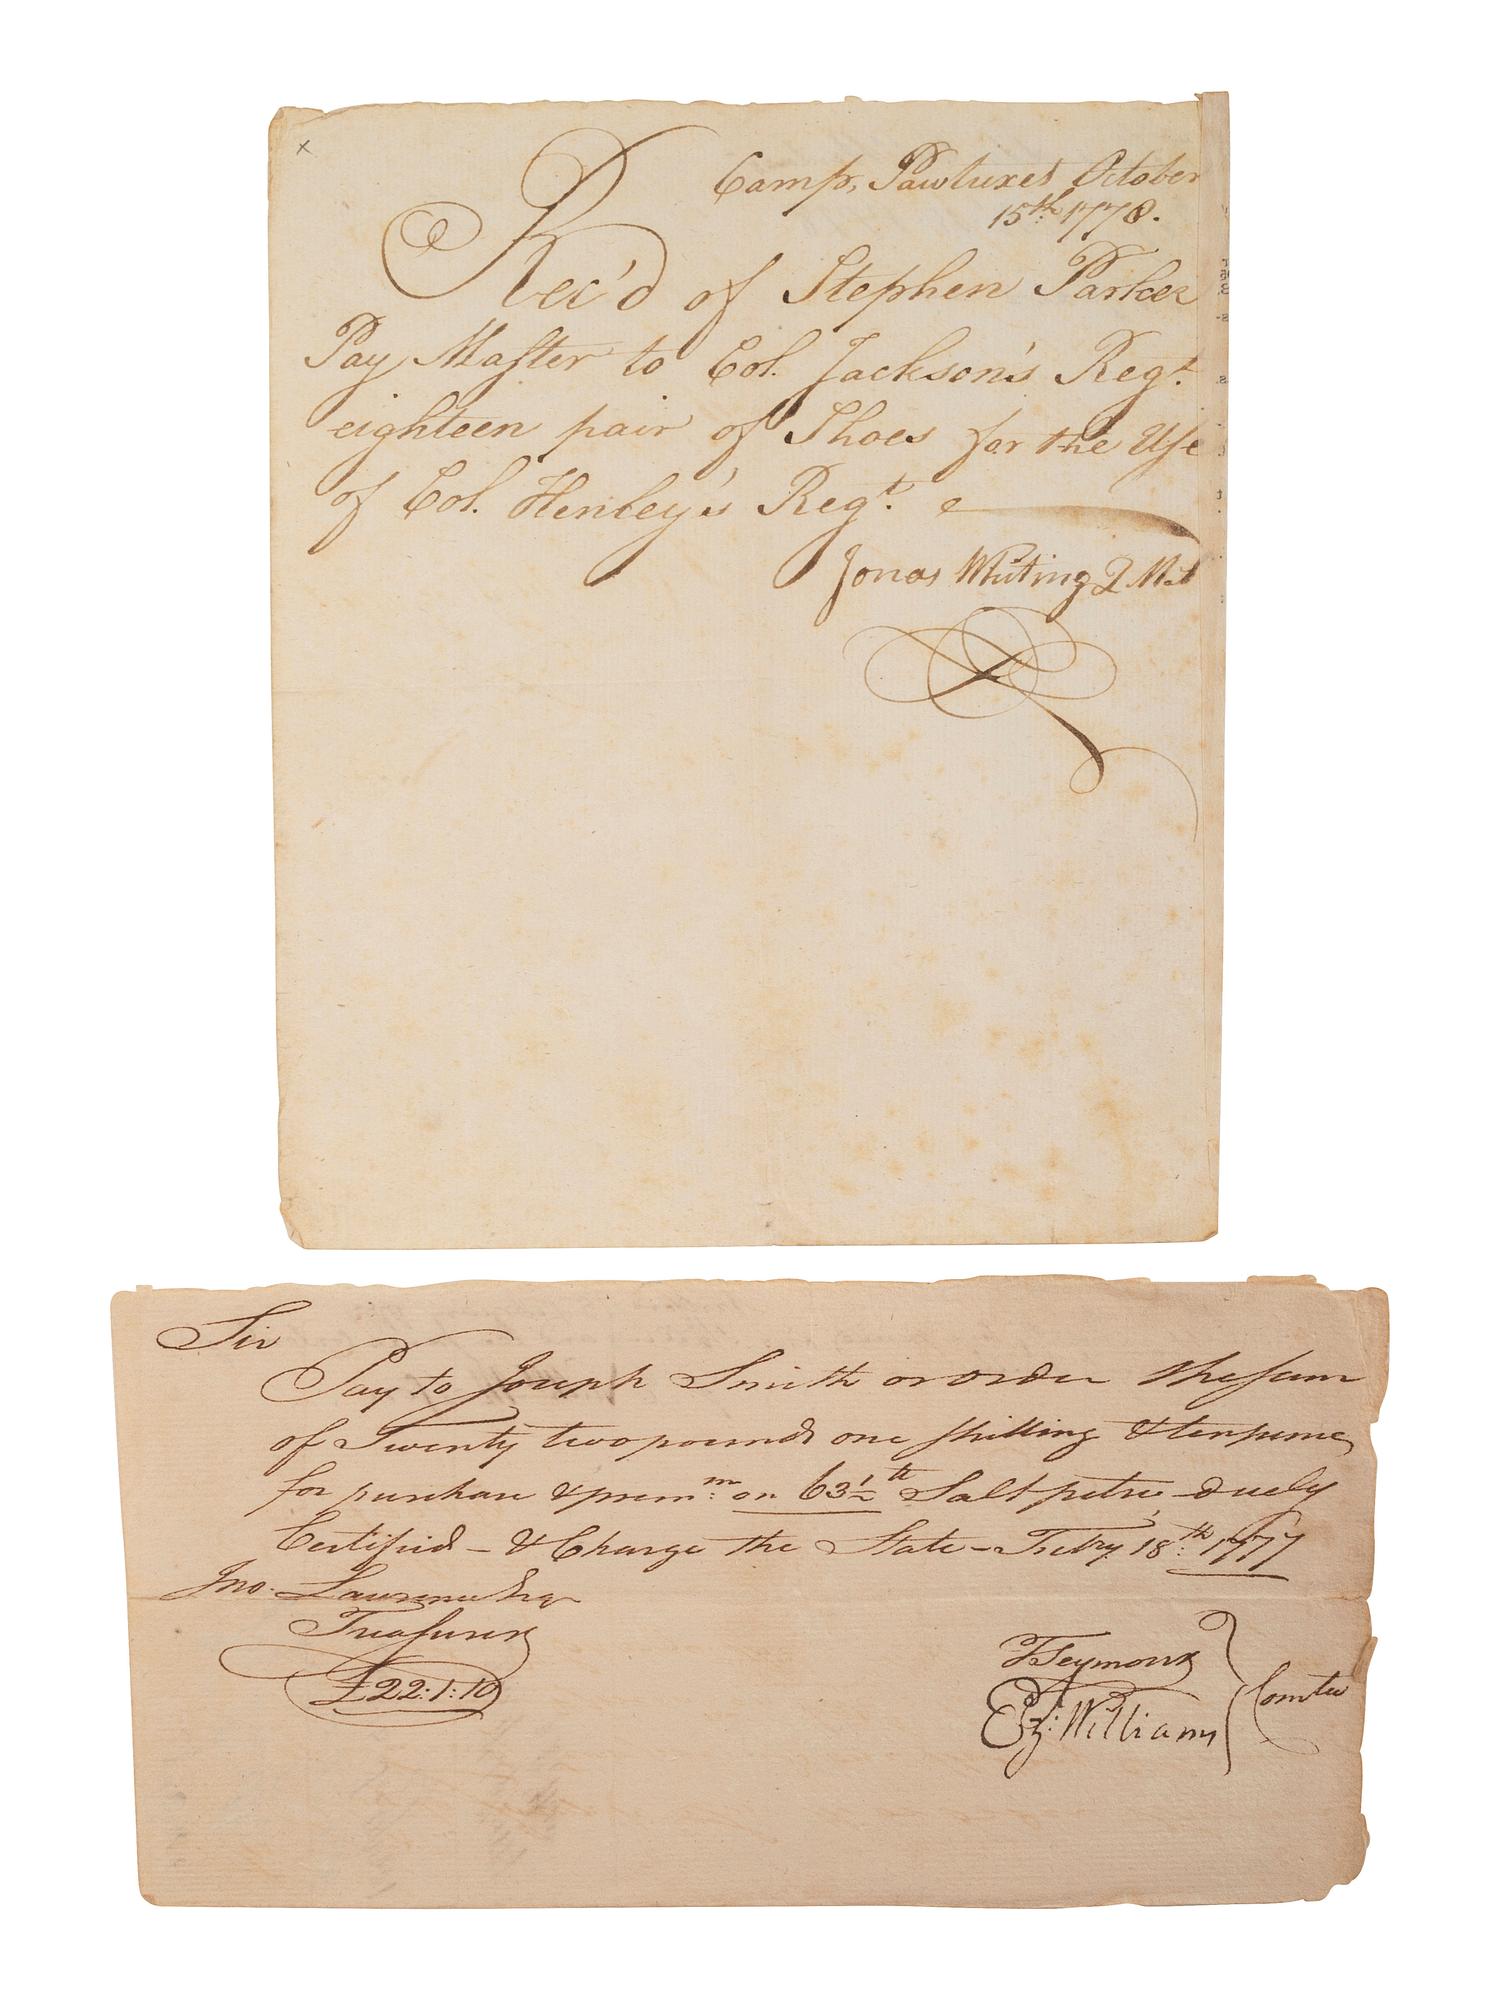 x
Camp, Pawtuxet October
15th 1778.
Rec'd of Stephen Parker
Pay Master to Col. Jackson's Regt.
eighteen pair of Shoes for the Use
of Col. Henley's Regt.
Jonas Whiting Q Mt
Sir
Pay to Joseph Smith or order the sum
of Twenty two pounds one shilling & ten pence
for purchase & prem.m on 63½ lb Salt petre duely
Certified - & Charge the State - Febry. 18th: 1777
Jno. Lawrence Esqr
Treasurer
£22:1:10
T Seymour
Ez: Williams
Comtee